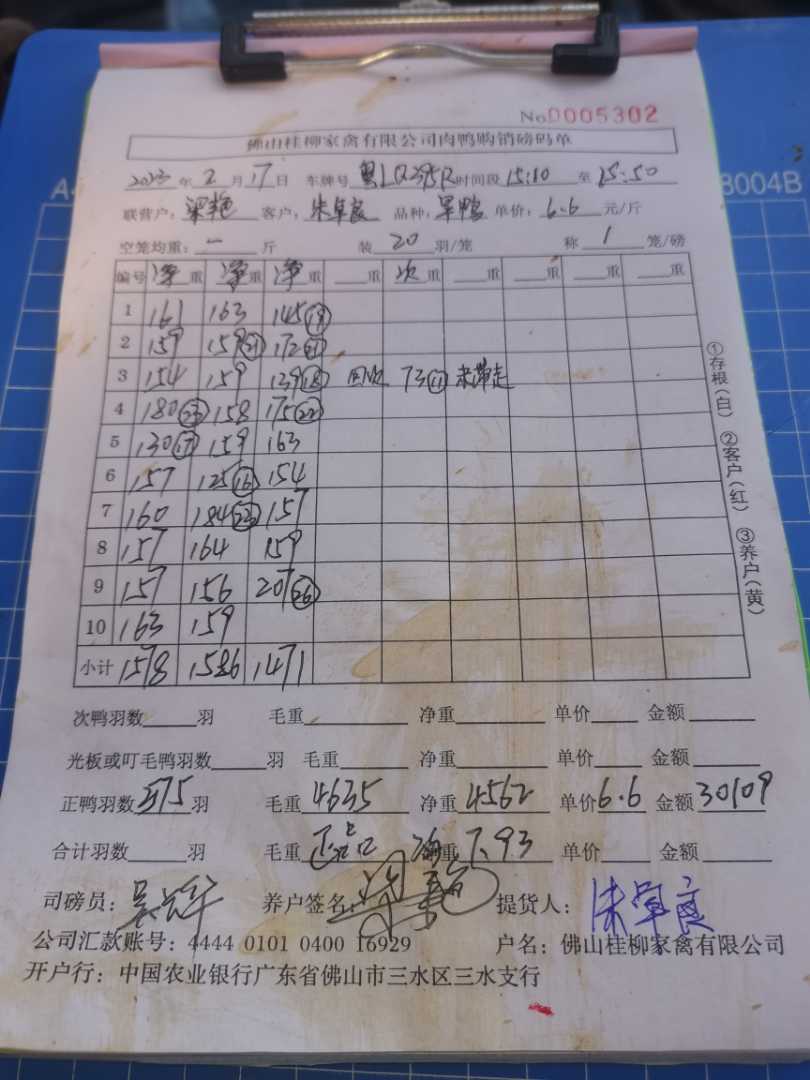 No.0005302
佛山桂柳家禽有限公司肉鸭购销磅码单
2023年2月17日 车牌号 粤LQ395R 时间段 15:10 至 15:50
联营户: 梁艳 客户: 朱卓良 品种: 单价: 6.6 元/斤
空笼均重: 一 斤 装 20 羽/笼 称 1 笼/磅
编号 净重 净重 净重 重 次重 重 重 重
1 161 163 145 19
2 159 159 21 172 21
3 154 159 139 18 回收 73 11 未带走
4 180 23 158 175 22
5 130 17 159 163
6 157 125 16 154
7 160 184 23 157
8 157 164 159
9 157 156 207 26
10 163 159
小计 1578 1586 1471
①存根(白) ②客户(红) ③养户(黄)
次鸭羽数 羽 毛重 净重 单价 金额
光板或叮毛鸭羽数 羽 毛重 净重 单价 金额
正鸭羽数 575 羽 毛重 4635 净重 4562 单价 6.6 金额 30109
合计羽数 羽 毛重 净重 7.93 单价 金额
司磅员: 养户签名: 提货人: 朱卓良
公司汇款账号: 4444 0101 0400 16929 户名: 佛山桂柳家禽有限公司
开户行: 中国农业银行广东省佛山市三水区三水支行
8004B